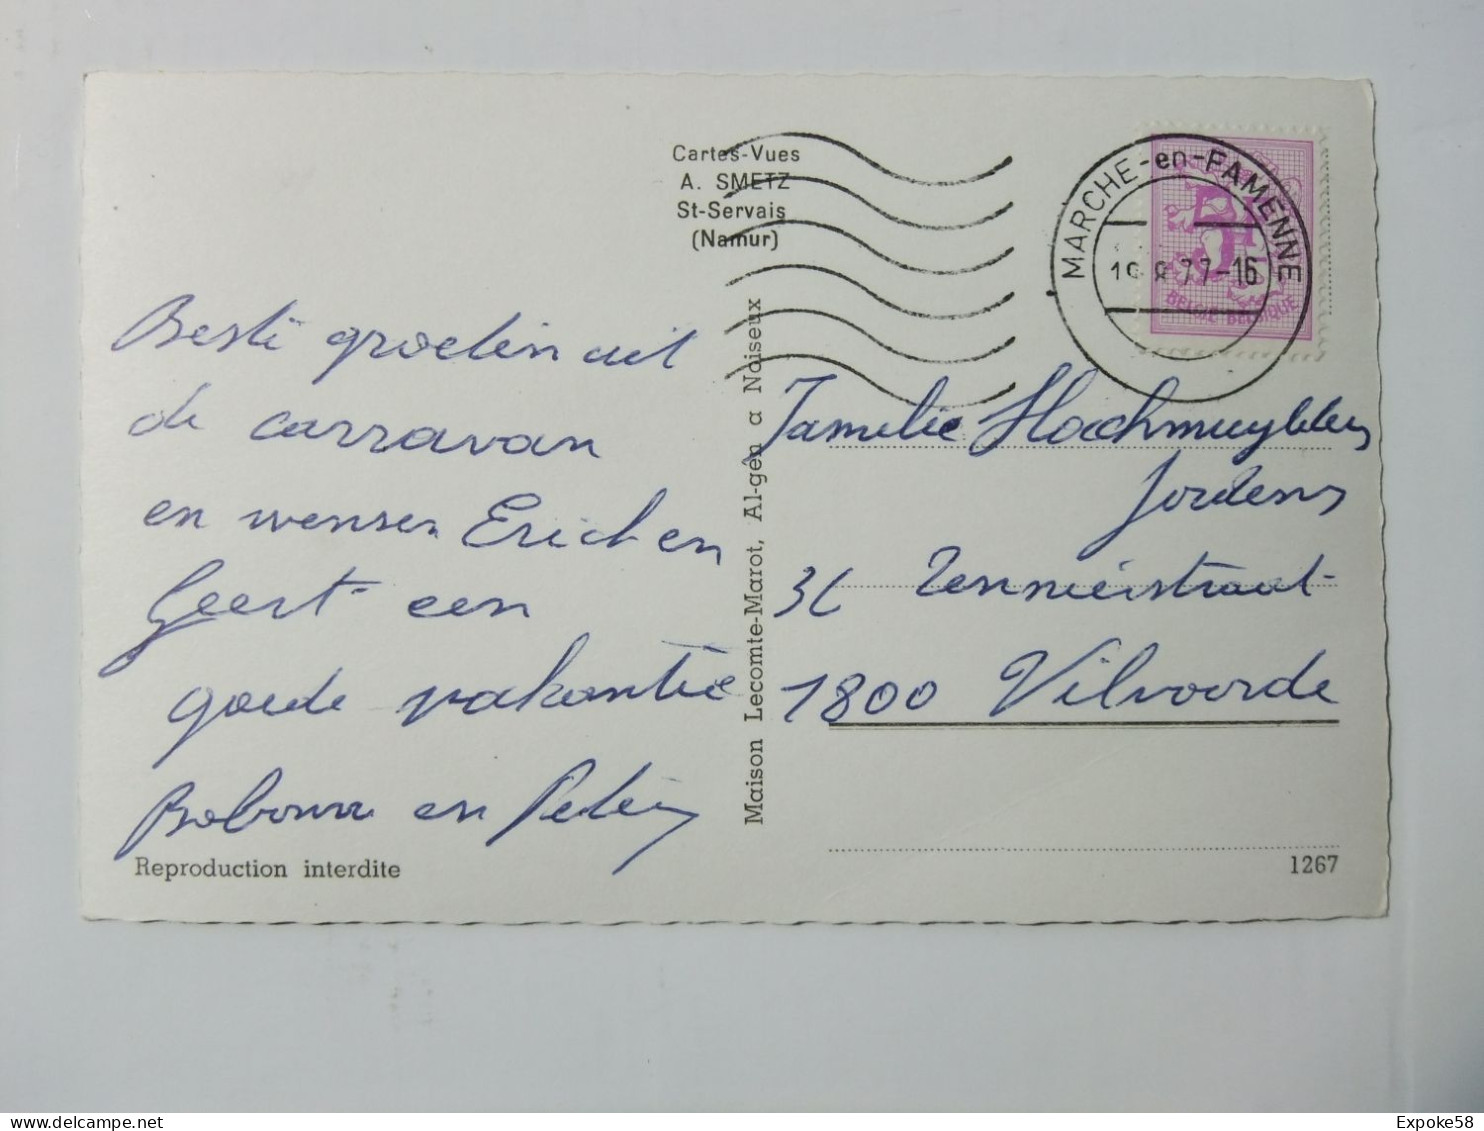 Cartes-Vues
A. SMETZ
St-Servais
(Namur)
MARCHE-en-FAMENNE
19 8 77-16
BELGIE-BELGIQUE
Beste groeten uit
de carravan
en wensen Erich en
Geert een
goede vakantie
Bobonne en Peter
Reproduction interdite
Maison Lecomte-Marot, Al-gên a Noiseux
Familie
Jordens
1800 Vilvoorde
1267
delcampe.net
Expoke58